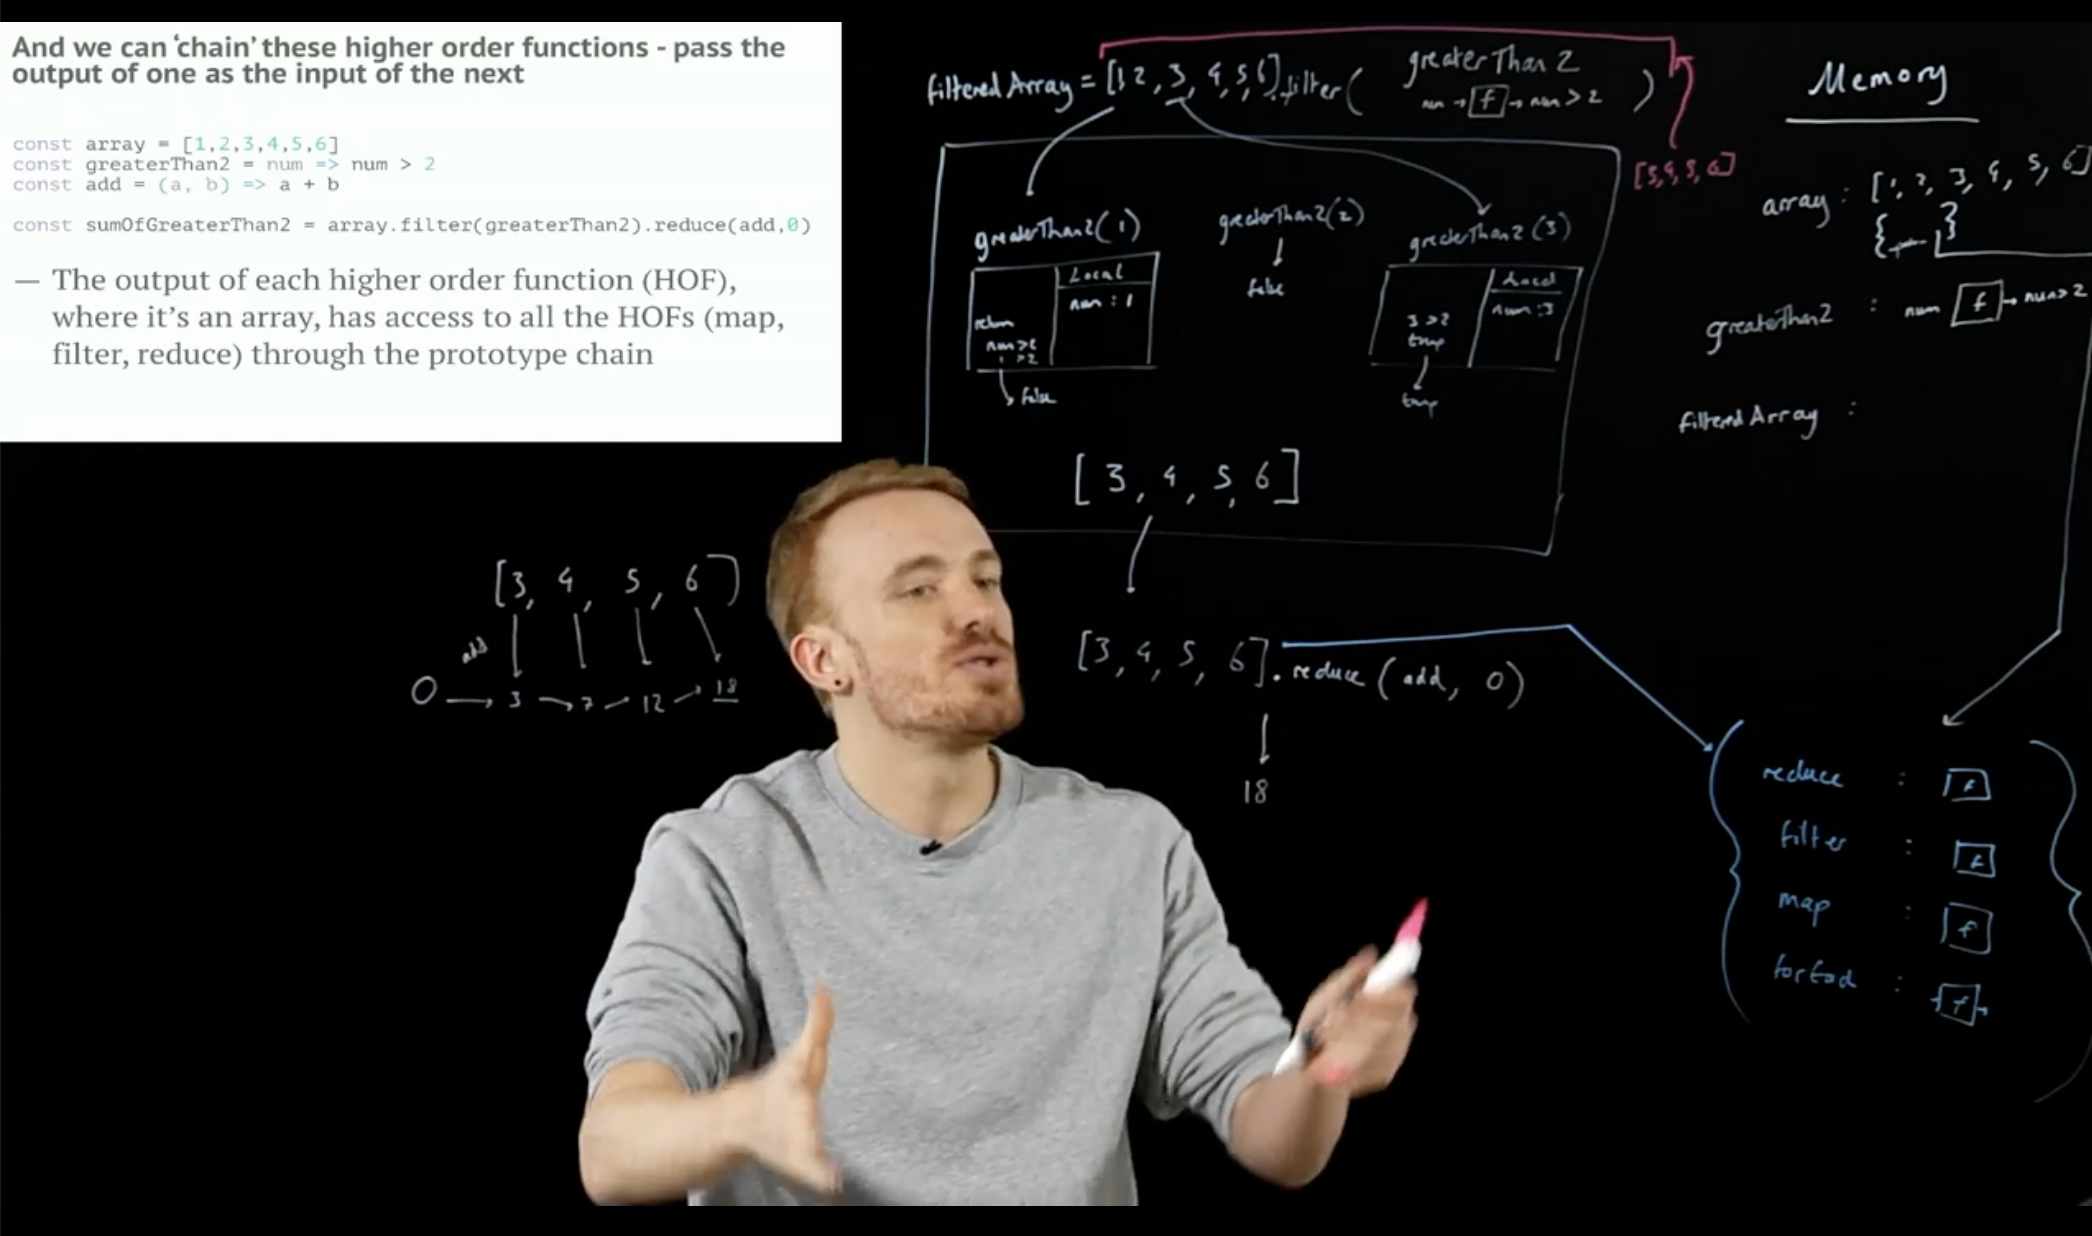 And we can ‘chain’ these higher order functions - pass the
output of one as the input of the next
const array = [1,2,3,4,5,6]
const greaterThan2 = num => num > 2
const add = (a, b) => a + b
const sumOfGreaterThan2 = array.filter(greaterThan2).reduce(add,0)
— The output of each higher order function (HOF),
where it’s an array, has access to all the HOFs (map,
filter, reduce) through the prototype chain
filteredArray = [1 2, 3, 4, 5, 6].filter(
greaterThan 2
num → f → num > 2 )
[3,4,5,6]
greaterThan2(1)
Local
num : 1
return
num>2
1 >2
false
greaterThan2(2)
false
greaterThan2(3)
Local
num :3
3 >2
true
true
[ 3, 4, 5, 6 ]
[3, 4, 5, 6].reduce(add, 0)
18
[3, 4, 5, 6]
add
0 → 3 → 7 → 12 → 18
Memory
array : [1, 2, 3, 4, 5, 6]
{ }
greaterThan2 : num f → num> 2
filteredArray :
reduce : f
filter : f
map : f
forEach : f